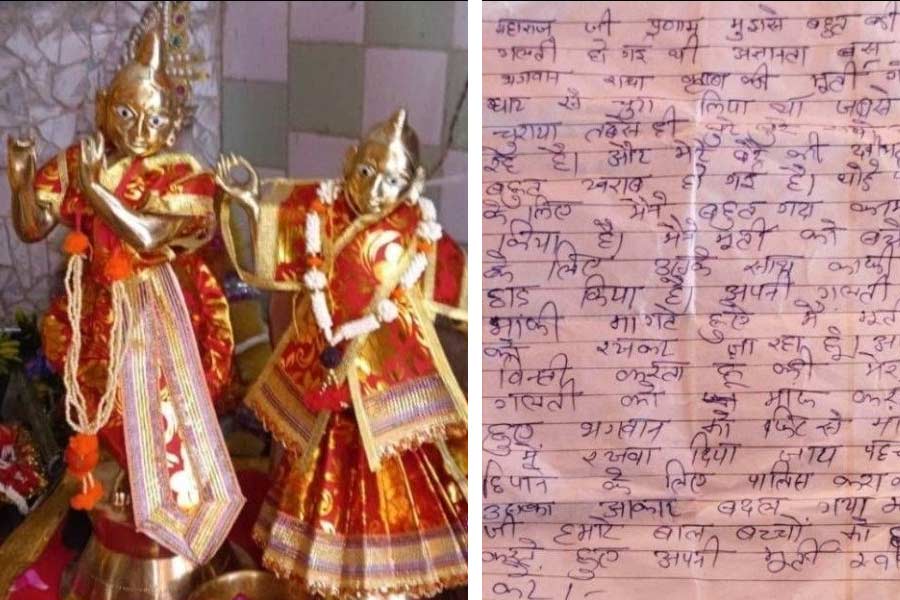 महाराज जी प्रणाम मुझसे बहुत
गलती हो गई थी अज्ञानता बस
भगवान राधा कृष्ण की मूर्ती
चुरा लिया था जबसे
चुराया तबसे ही बुरे
रहे है। और मेरे बेटे की
बहुत खराब हो गई है। थोडे
के लिए मैने बहुत गंदा काम
किया है। मैने मूर्ती को बेचने
के लिए उसके साथ काफी
छाड किया है अपनी गलती
माफी मांगते हुए मै
को रखकर जा रहा हूं।
विनती करता हूं की
गलती को माफ
हुए भगवान को फिर से
में रखवा दिया जाय
के लिए पालिस
उसका आकार बदल गया
जी हमारे बाल बच्चो को
करते हुए अपनी मूर्ती
करे।-